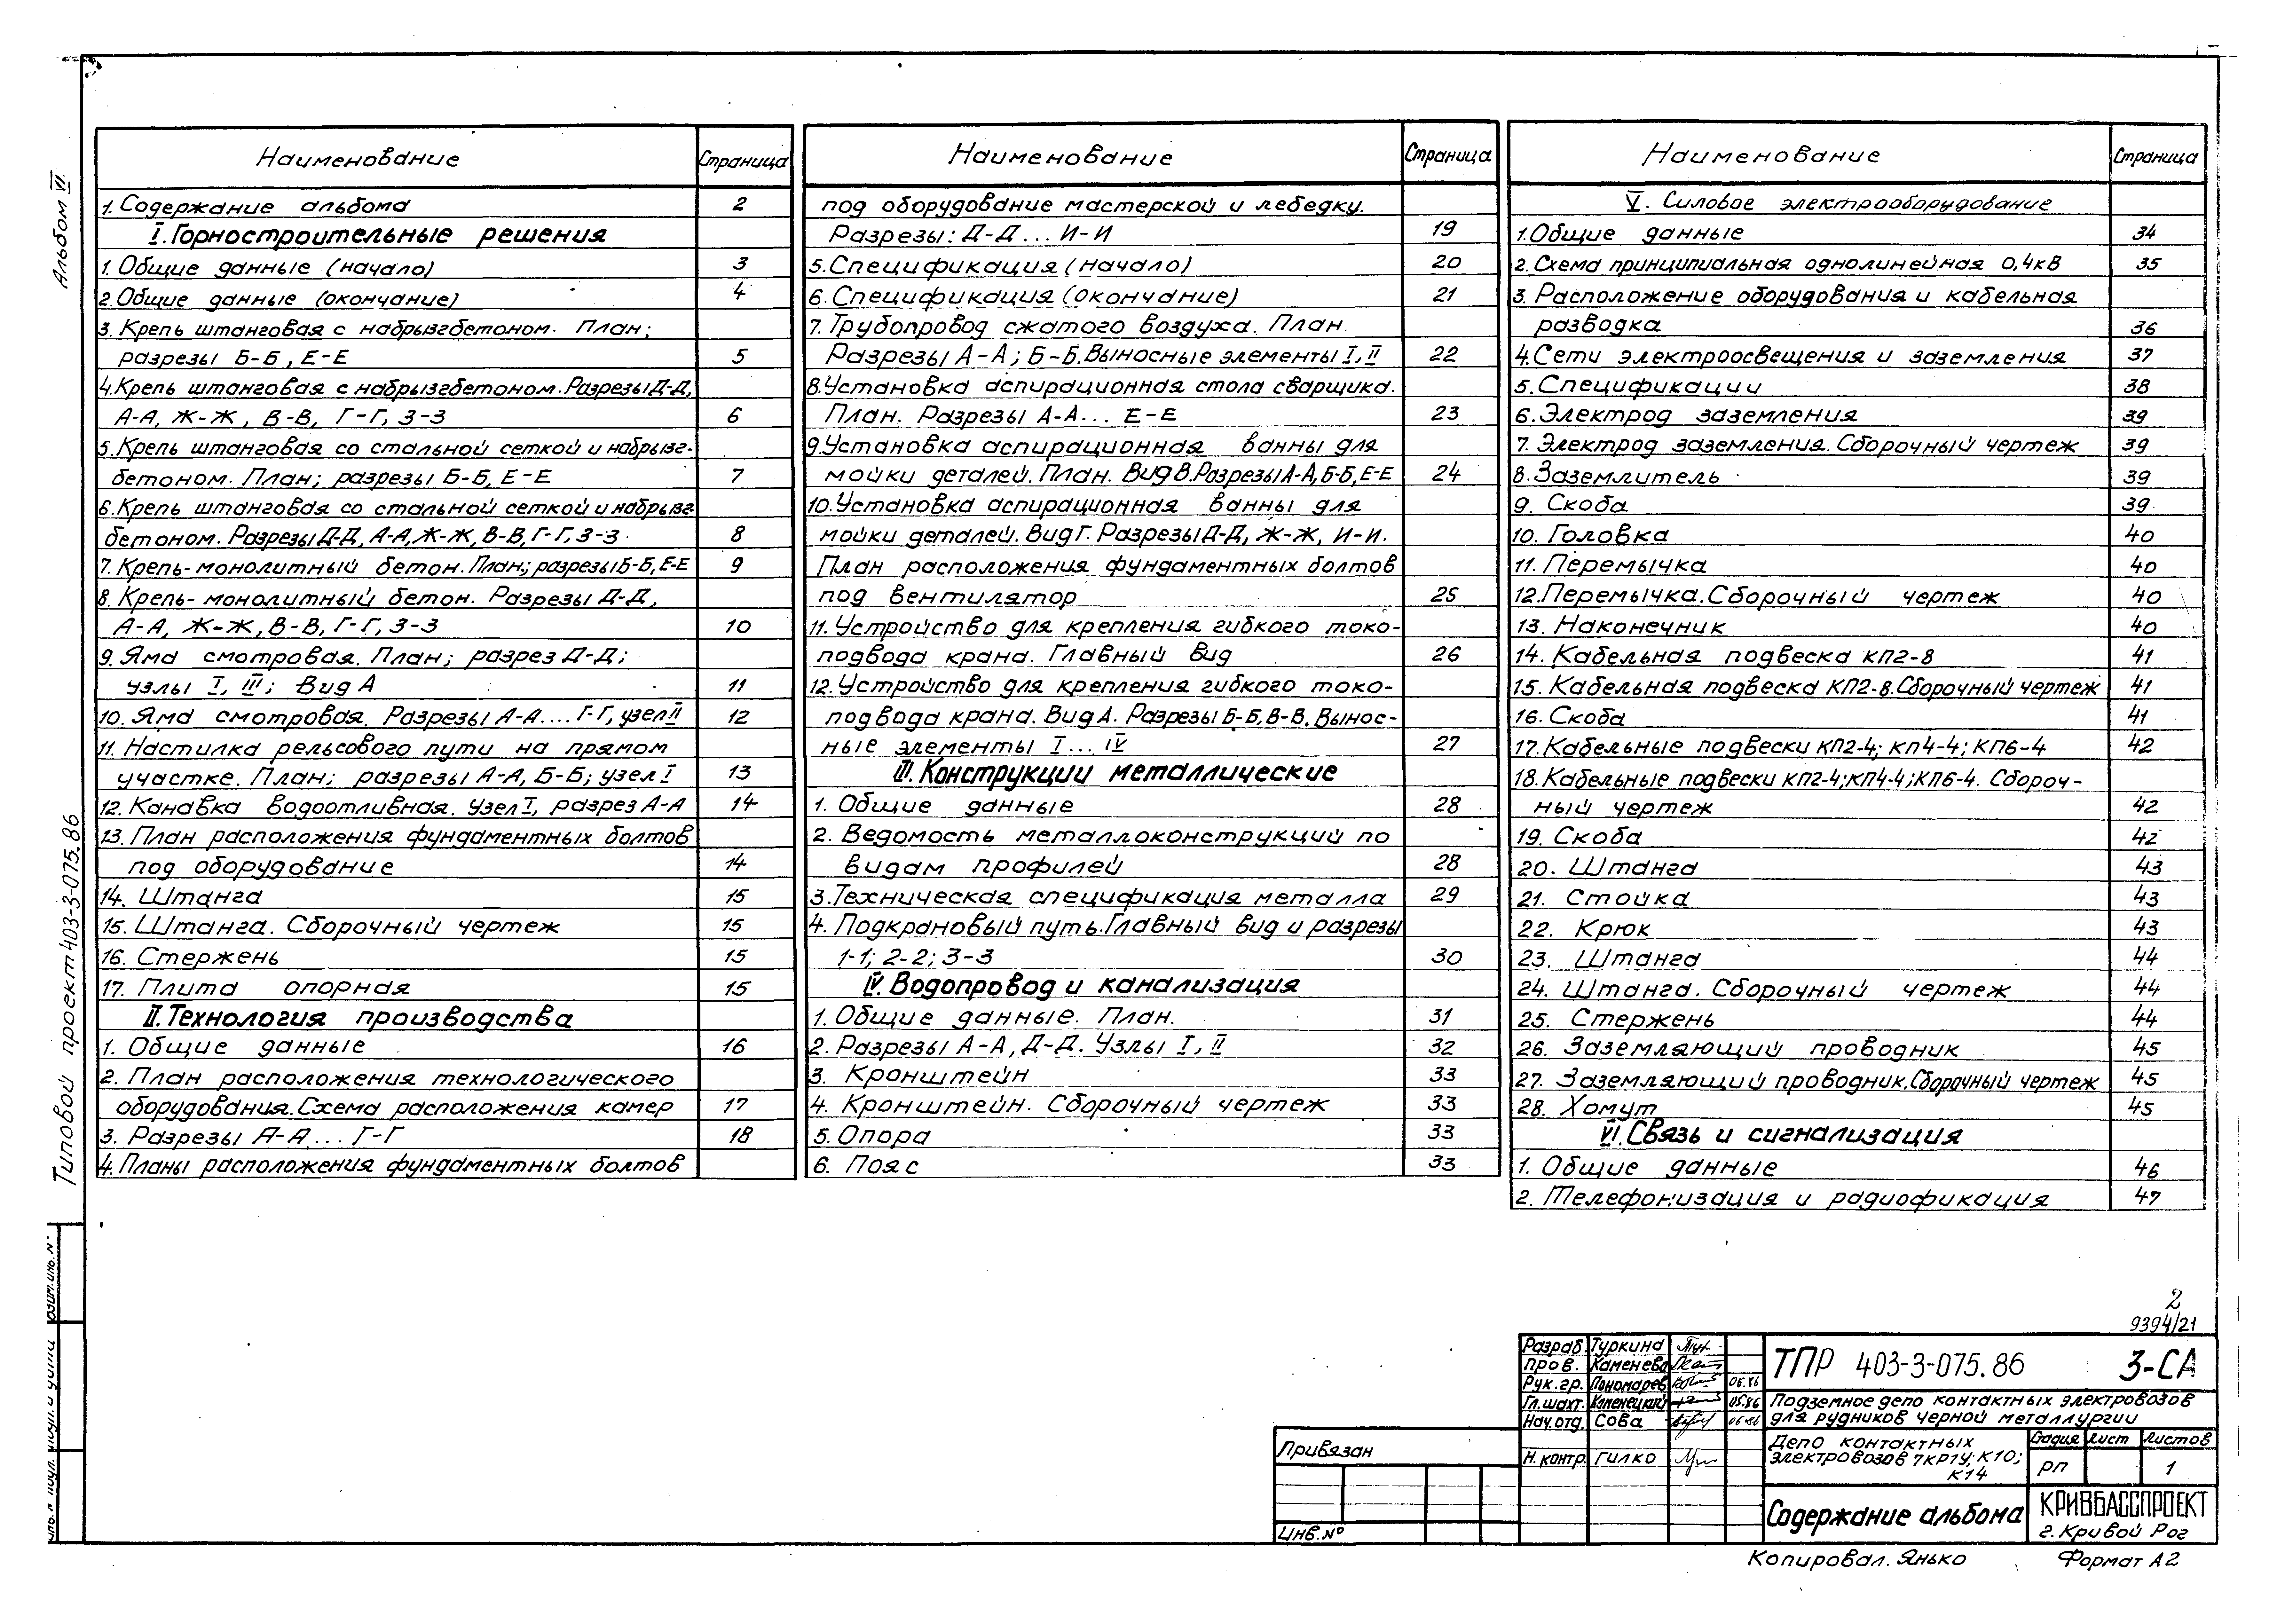 Альбом VI.
Типовой проект 403-3-075.86
Наименование Страница
1. Содержание альбома 2
I. Горностроительные решения
1. Общие данные (начало) 3
2. Общие данные (окончание) 4
3. Крепь штанговая с набрызгбетоном. План;
разрезы Б-Б, Е-Е 5
4. Крепь штанговая с набрызгбетоном. Разрезы Д-Д,
А-А, Ж-Ж, В-В, Г-Г, З-З 6
5. Крепь штанговая со стальной сеткой и набрызг-
бетоном. План; разрезы Б-Б, Е-Е 7
6. Крепь штанговая со стальной сеткой и набрызг
бетоном. Разрезы Д-Д, А-А, Ж-Ж, В-В, Г-Г, З-З 8
7. Крепь-монолитный бетон. План; разрезы Б-Б, Е-Е 9
8. Крепь-монолитный бетон. Разрезы Д-Д,
А-А, Ж-Ж, В-В, Г-Г, З-З 10
9. Яма смотровая. План; разрез Д-Д;
узлы I, III; Вид А 11
10. Яма смотровая. Разрезы А-А.... Г-Г, узел II 12
11. Настилка рельсового пути на прямом
участке. План; разрезы А-А, Б-Б; узел I 13
12. Канавка водоотливная. Узел I, разрез А-А 14
13. План расположения фундаментных болтов
под оборудование 14
14. Штанга 15
15. Штанга. Сборочный чертеж 15
16. Стержень 15
17. Плита опорная 15
II. Технология производства
1. Общие данные 16
2. План расположения технологического
оборудования. Схема расположения камер 17
3. Разрезы А-А... Г-Г 18
4. Планы расположения фундаментных болтов
Наименование Страница
под оборудование мастерской и лебедку.
Разрезы: Д-Д... И-И 19
5. Спецификация (начало) 20
6. Спецификация (окончание) 21
7. Трубопровод сжатого воздуха. План.
Разрезы А-А; Б-Б. Выносные элементы I, II 22
8. Установка аспирационная стола сварщика.
План. Разрезы А-А... Е-Е 23
9. Установка аспирационная ванны для
мойки деталей. План. Вид В. Разрезы А-А, Б-Б, Е-Е 24
10. Установка аспирационная ванны для
мойки деталей. Вид Г. Разрезы Д-Д, Ж-Ж, И-И.
План расположения фундаментных болтов
под вентилятор 25
11. Устройство для крепления гибкого токо-
подвода крана. Главный вид 26
12. Устройство для крепления гибкого токо-
подвода крана. Вид А. Разрезы Б-Б, В-В. Вынос-
ные элементы I... IV 27
III. Конструкции металлические
1. Общие данные 28
2. Ведомость металлоконструкций по
видам профилей 28
3. Техническая спецификация металла 29
4. Подкрановый путь. Главный вид и разрезы
1-1; 2-2; 3-3 30
IV. Водопровод и канализация
1. Общие данные. План. 31
2. Разрезы А-А, Д-Д. Узлы I, II 32
3. Кронштейн 33
4. Кронштейн. Сборочный чертеж 33
5. Опора 33
6. Пояс 33
Наименование Страница
V. Силовое электрооборудование
1. Общие данные 34
2. Схема принципиальная однолинейная 0,4кВ 35
3. Расположение оборудования и кабельная
разводка 36
4. Сети электроосвещения и заземления 37
5. Спецификации 38
6. Электрод заземления 39
7. Электрод заземления. Сборочный чертеж 39
8. Заземлитель 39
9. Скоба 39
10. Головка 40
11. Перемычка 40
12. Перемычка. Сборочный чертеж 40
13. Наконечник 40
14. Кабельная подвеска КП2-8 41
15. Кабельная подвеска КП2-8. Сборочный чертеж 41
16. Скоба 41
17. Кабельные подвески КП2-4; КП4-4; КП6-4 42
18. Кабельные подвески КП2-4; КП4-4; КП6-4. Сбороч-
ный чертеж 42
19. Скоба 42
20. Штанга 43
21. Стойка 43
22. Крюк 43
23. Штанга 44
24. Штанга. Сборочный чертеж 44
25. Стержень 44
26. Заземляющий проводник 45
27. Заземляющий проводник. Сборочный чертеж 45
28. Хомут 45
VI. Связь и сигнализация
1. Общие данные 46
2. Телефонизация и радиофикация 47
2
9394/21
Разраб. Туркина
Пров. Каменева
Рук.гр. Пономарев 06.86
Гл.шахт. Каменецкий 05.86
Нач.отд. Сова 06.86
Н.контр. Гилко
ТПР 403-3-075.86 3-СА
Подземное депо контактных электровозов
для рудников черной металлургии
Депо контактных
электровозов 7КР1У; К10;
К14
Стадия Лист Листов
РП 1
Содержание альбома
КРИВБАССПРОЕКТ
г. Кривой Рог
Привязан
Инв.№
Копировал. Янько Формат А2